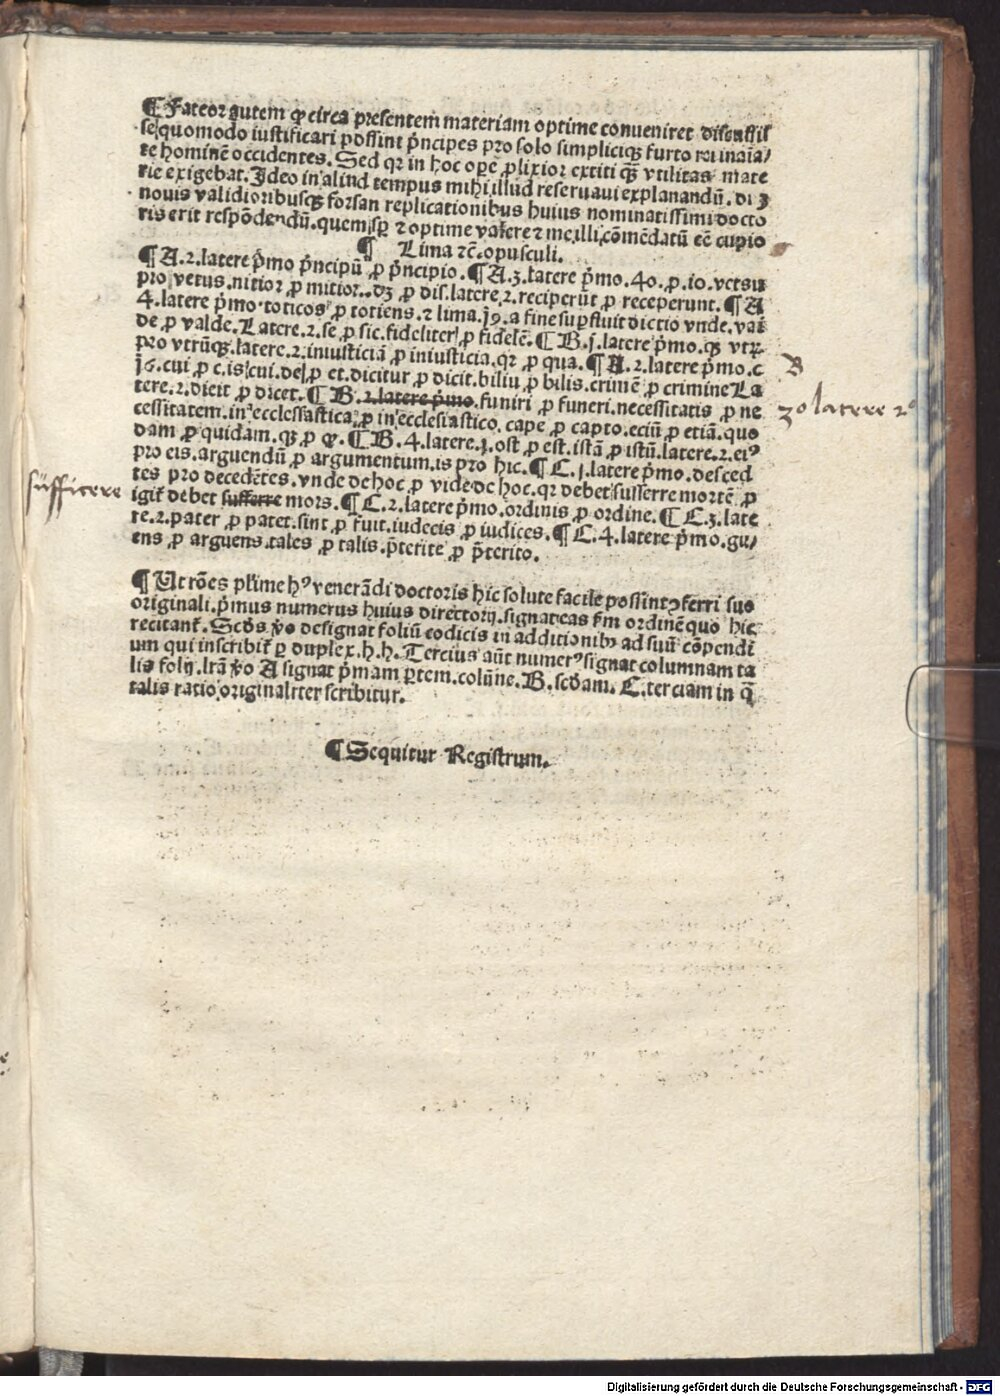 ¶ Fateor autem ꝙ circa presentem materiam optime conueniret discussis
se quomodo iustificari possint p̄ncipes pro solo simpliciqꝫ furto rei inaīa/
te hominē occidentes. Sed qꝛ in hoc oꝑe ꝓlixior extiti qꝫ vtilitas mate
rie exigebat. Ideo in aliud tempus mihi illud reseruaui explanandū.
nouis validioribusqꝫ forsan replicationibus huius nominatissimi docto
ris erit respōdendū. quem sꝑ ⁊ optime valere ⁊ me illi cōmēdatū eē cupio
¶ Lima ⁊c̄. opusculi.
¶ A. 2. latere p̄mo p̄ncipū ꝓ p̄ncipio. ¶ A. 3. latere p̄mo. 40. ꝓ. 10. versu
pro vetus. nitior ꝓ mitior.. dꝫ ꝓ dis. latere. 2. reciperūt ꝓ receperunt. ¶ A
4. latere p̄mo. toticos ꝓ totiens. ⁊ lima. j9. a fine suꝑfluit dictio vnde. val
de ꝓ valde. Latere. 2. se ꝓ sic. fideliter ꝓ fidelē. ¶ B. j. latere p̄mo. qꝫ vtrꝫ
pro vtrūqꝫ. latere. 2. iniusticiā ꝓ iniusticia. qꝛ ꝓ qua. ¶ A. 2. latere p̄mo. c
j6. cui ꝓ c. is cui. de ꝓ et. dicitur ꝓ dicit. biliu ꝓ bilis. crimē ꝓ crimine La
tere. 2. dicit ꝓ dicet. ¶ B. 2. latere p̄mo. funiri ꝓ funeri. necessitatis ꝓ ne
cessitatem. in ecclesiastica ꝓ in ecclesiastico. cape ꝓ capto. eciū ꝓ etiā. quo
dam ꝓ quidam. qꝫ ꝓ ꝙ. ¶ B. 4. latere. j. ost ꝓ est. istā ꝓ istū. latere. 2. eiꝰ
pro eis. arguendū ꝓ argumentum. is pro hic. ¶ C. j. latere p̄mo. desced
tes pro decedētes. vnde de hoc ꝓ vide de hoc. qꝛ debet sufferre mortē ꝓ
igit̄ debet sufferre mors. ¶ C. 2. latere p̄mo. ordinis ꝓ ordine. ¶ C. 3. late
re. 2. pater ꝓ patet. sint ꝓ fuit. iudecis ꝓ iudices. ¶ C. 4. latere p̄mo. gu/
ens ꝓ arguens. tales ꝓ talis. p̄terite ꝓ p̄terito.
B
3o latere 2o
sufficere
¶ Ut rōes pl'ime hꝰ venerādi doctoris hic solute facile possint ꝯferri suo
originali. p̄mus numerus huius directorij. signat eas ẜm ordinē quo hic
recitant̄. Scd̄s v̄o designat foliū codicis in additionibꝫ ad suū cōpendi
um qui inscribit̄ ꝑ duplex. h. h. Tercius aūt numerꝰ signat columnam ta
lis folij. lrā v̄o A signat p̄mam ꝑtem. colūne. B. scd̄am. C. terciam in q̄
talis ratio originaliter scribitur.
¶ Sequitur Registrum.
Digitalisierung gefördert durch die Deutsche Forschungsgemeinschaft - DFG